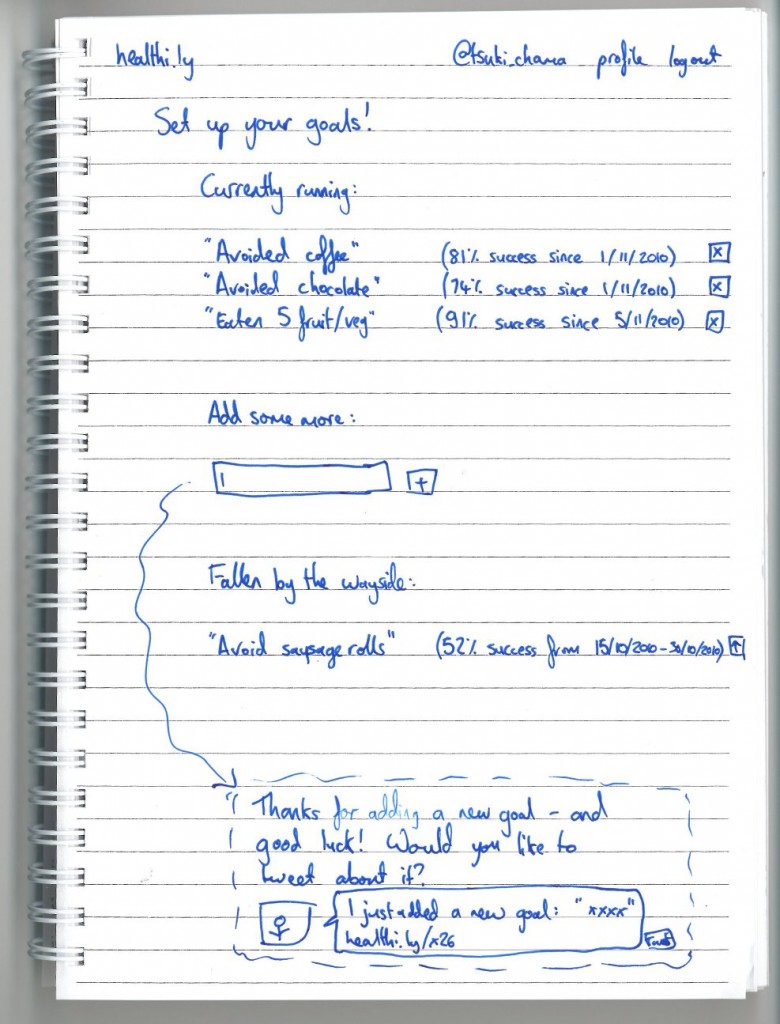 healthi.ly @tsuki_chama profile logout
Set up your goals!
Currently running:
"Avoided coffee" (81% success since 1/11/2010) x
"Avoided chocolate" (74% success since 1/11/2010) x
"Eaten 5 fruit/veg" (91% success since 5/11/2010) x
Add some more:
+
Fallen by the wayside:
"Avoid sausage rolls" (52% success from 15/10/2010-30/10/2010) ↑
Thanks for adding a new goal - and
good luck! Would you like to
tweet about it?
I just added a new goal: "xxxx"
healthi.ly/x26